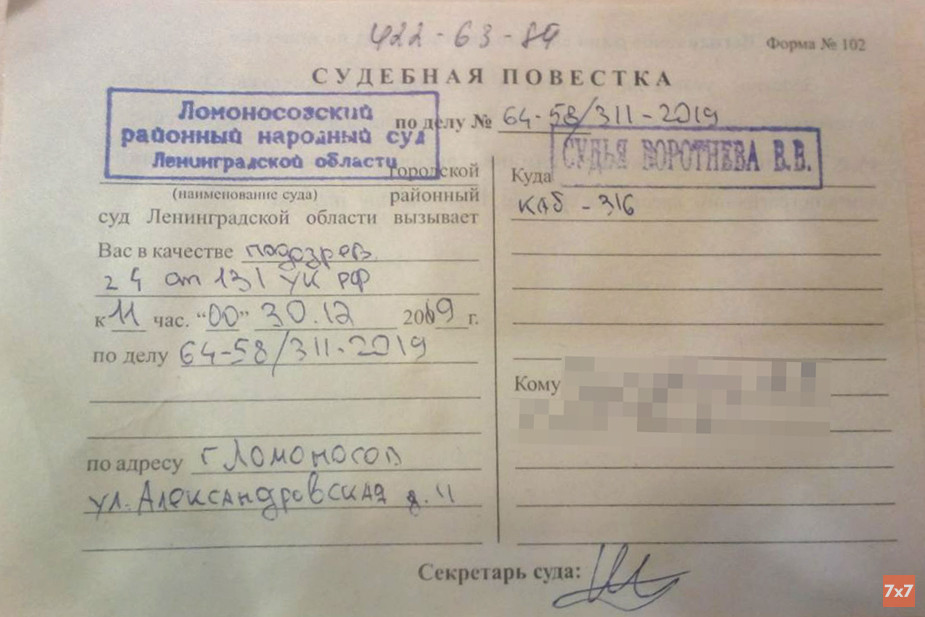 422-63-84
Форма № 102
СУДЕБНАЯ ПОВЕСТКА
Ломоносовский
районный народный суд
Ленинградской области
по делу № 64-58/311-2019
городской
(наименование суда) районный
суд Ленинградской области вызывает
Вас в качестве подозрев.
2 ч ст 131 УК РФ
к 11 час. “00” 30.12 2019 г.
по делу 64-58/311-2019
по адресу г Ломоносов
ул. Александровская д. 11
СУДЬЯ ВОРОТНЕВА В.В.
Куда
каб - 316
Кому
Секретарь суда:
7x7